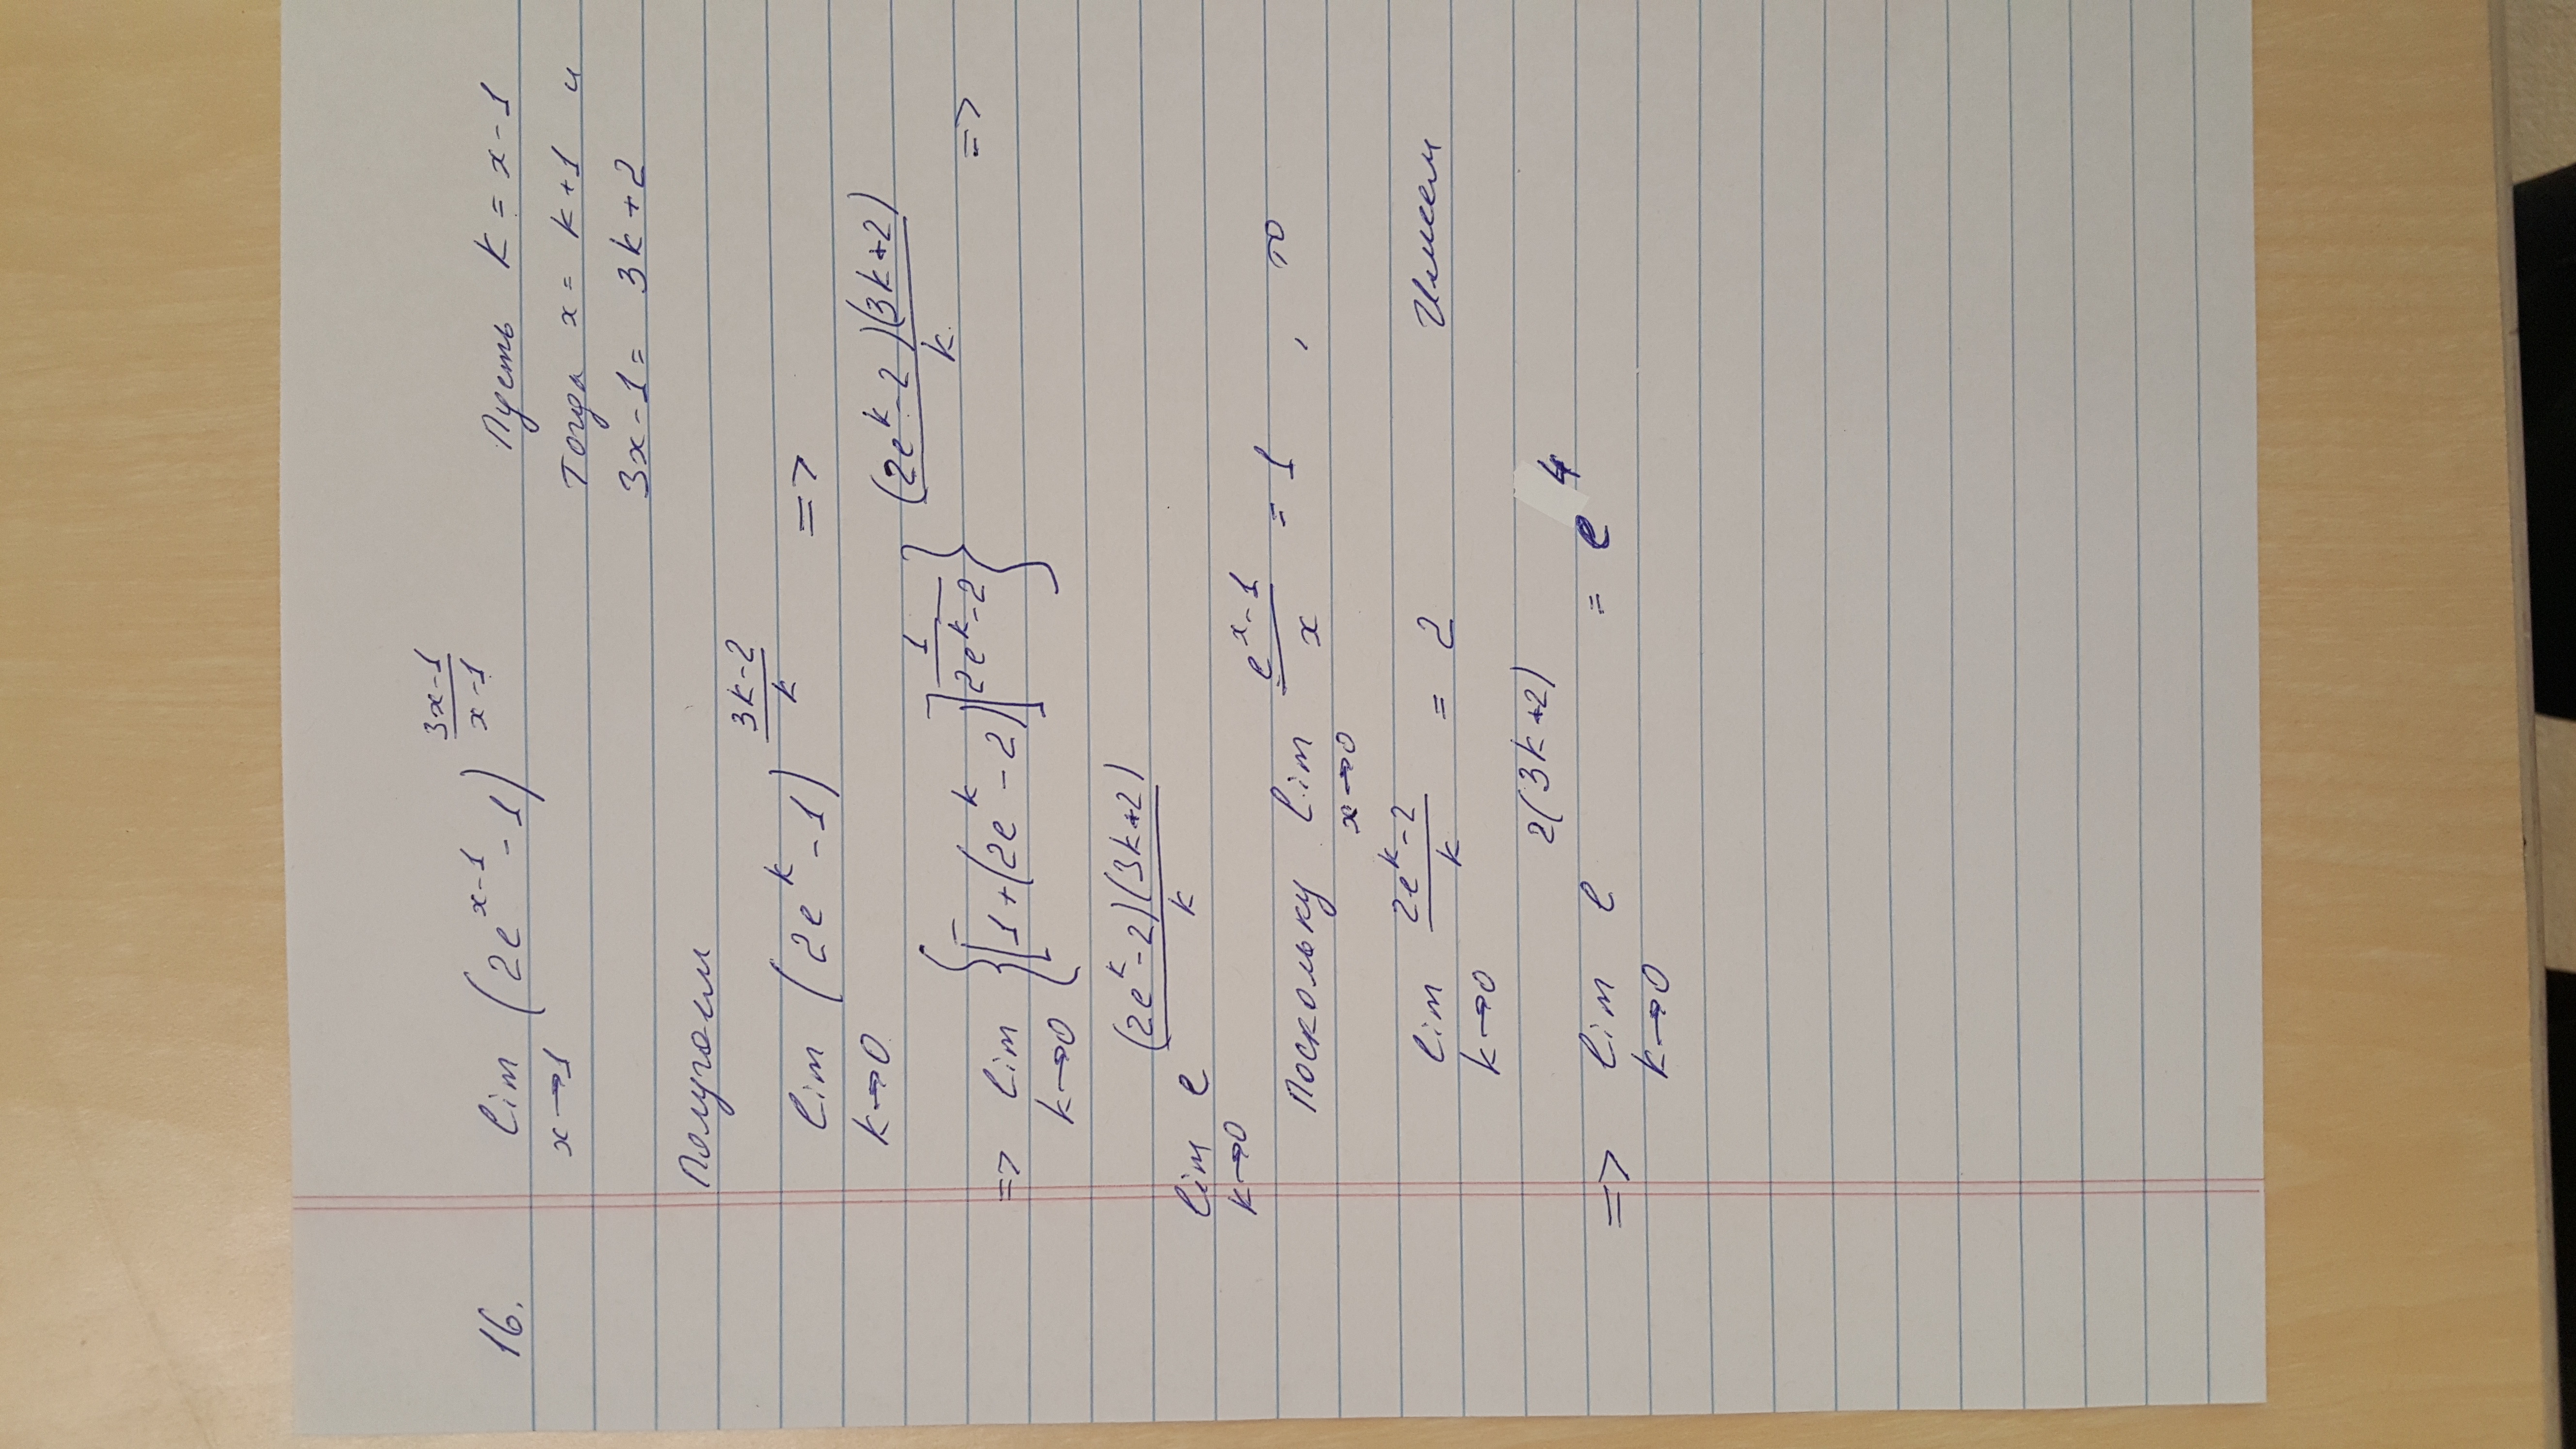 16. lim x→1 (2e^(x-1) - 1)^((3x-1)/(x-1)) Пусть k = x-1
Тогда x = k+1 и
3x-1 = 3k+2
Получаем
lim k→0 (2e^k - 1)^((3k-2)/k) =>
=> lim k→0 {[1+(2e^k - 2)]^(1/(2e^k-2))}^((2e^k-2)(3k+2)/k) =>
lim k→0 e^((2e^k-2)(3k+2)/k)
Поскольку lim x→0 (e^x-1)/x = 1, то
lim k→0 (2e^k-2)/k = 2 Имеем
=> lim k→0 e^(2(3k+2)) = e^4